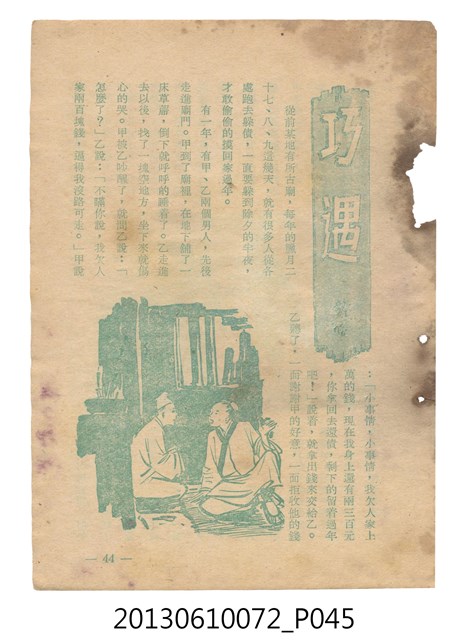 巧遇
從前某地有所古廟，每年的臘月二
十七、八、九這幾天，就有很多人從各
處跑去躲債，一直要躲到除夕的半夜，
才敢偷偷的摸回家過年。
有一年，有甲、乙兩個男人，先後
走進廟門。甲到了廟裡，在地下鋪了一
床草蓆，倒下就呼呼的睡着了。乙走進
去以後，找了一塊空地方，坐下來就傷
心的哭。甲被乙吵醒了，就問乙說：「
怎麼了？」乙說：「不瞞你說，我欠人
家兩百塊錢，逼得我沒路可走。」甲說
：「小事情，小事情，我欠人家上
萬的錢，現在我身上還有兩三百元
，你拿回去還債，剩下的留着過年
吧！」說着，就拿出錢來交給乙。
乙聽了，一面謝謝甲的好意，一面拒收他的錢
— 44 —
20130610072_P045